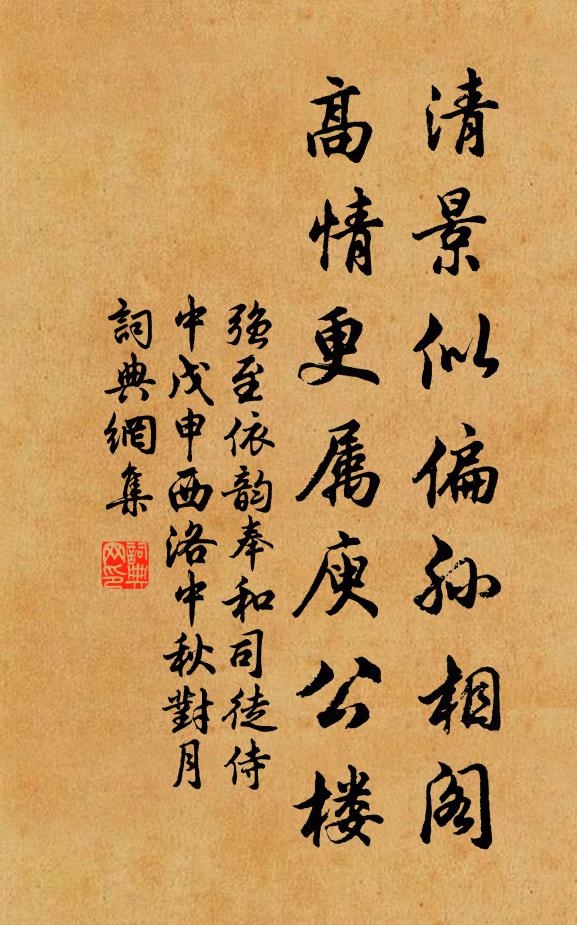 清景似偏孙相阁
髙情更属庾公楼
强至依韵奉和司徒侍
中戊申西洛中秋對月
詞典網集
詞典网印